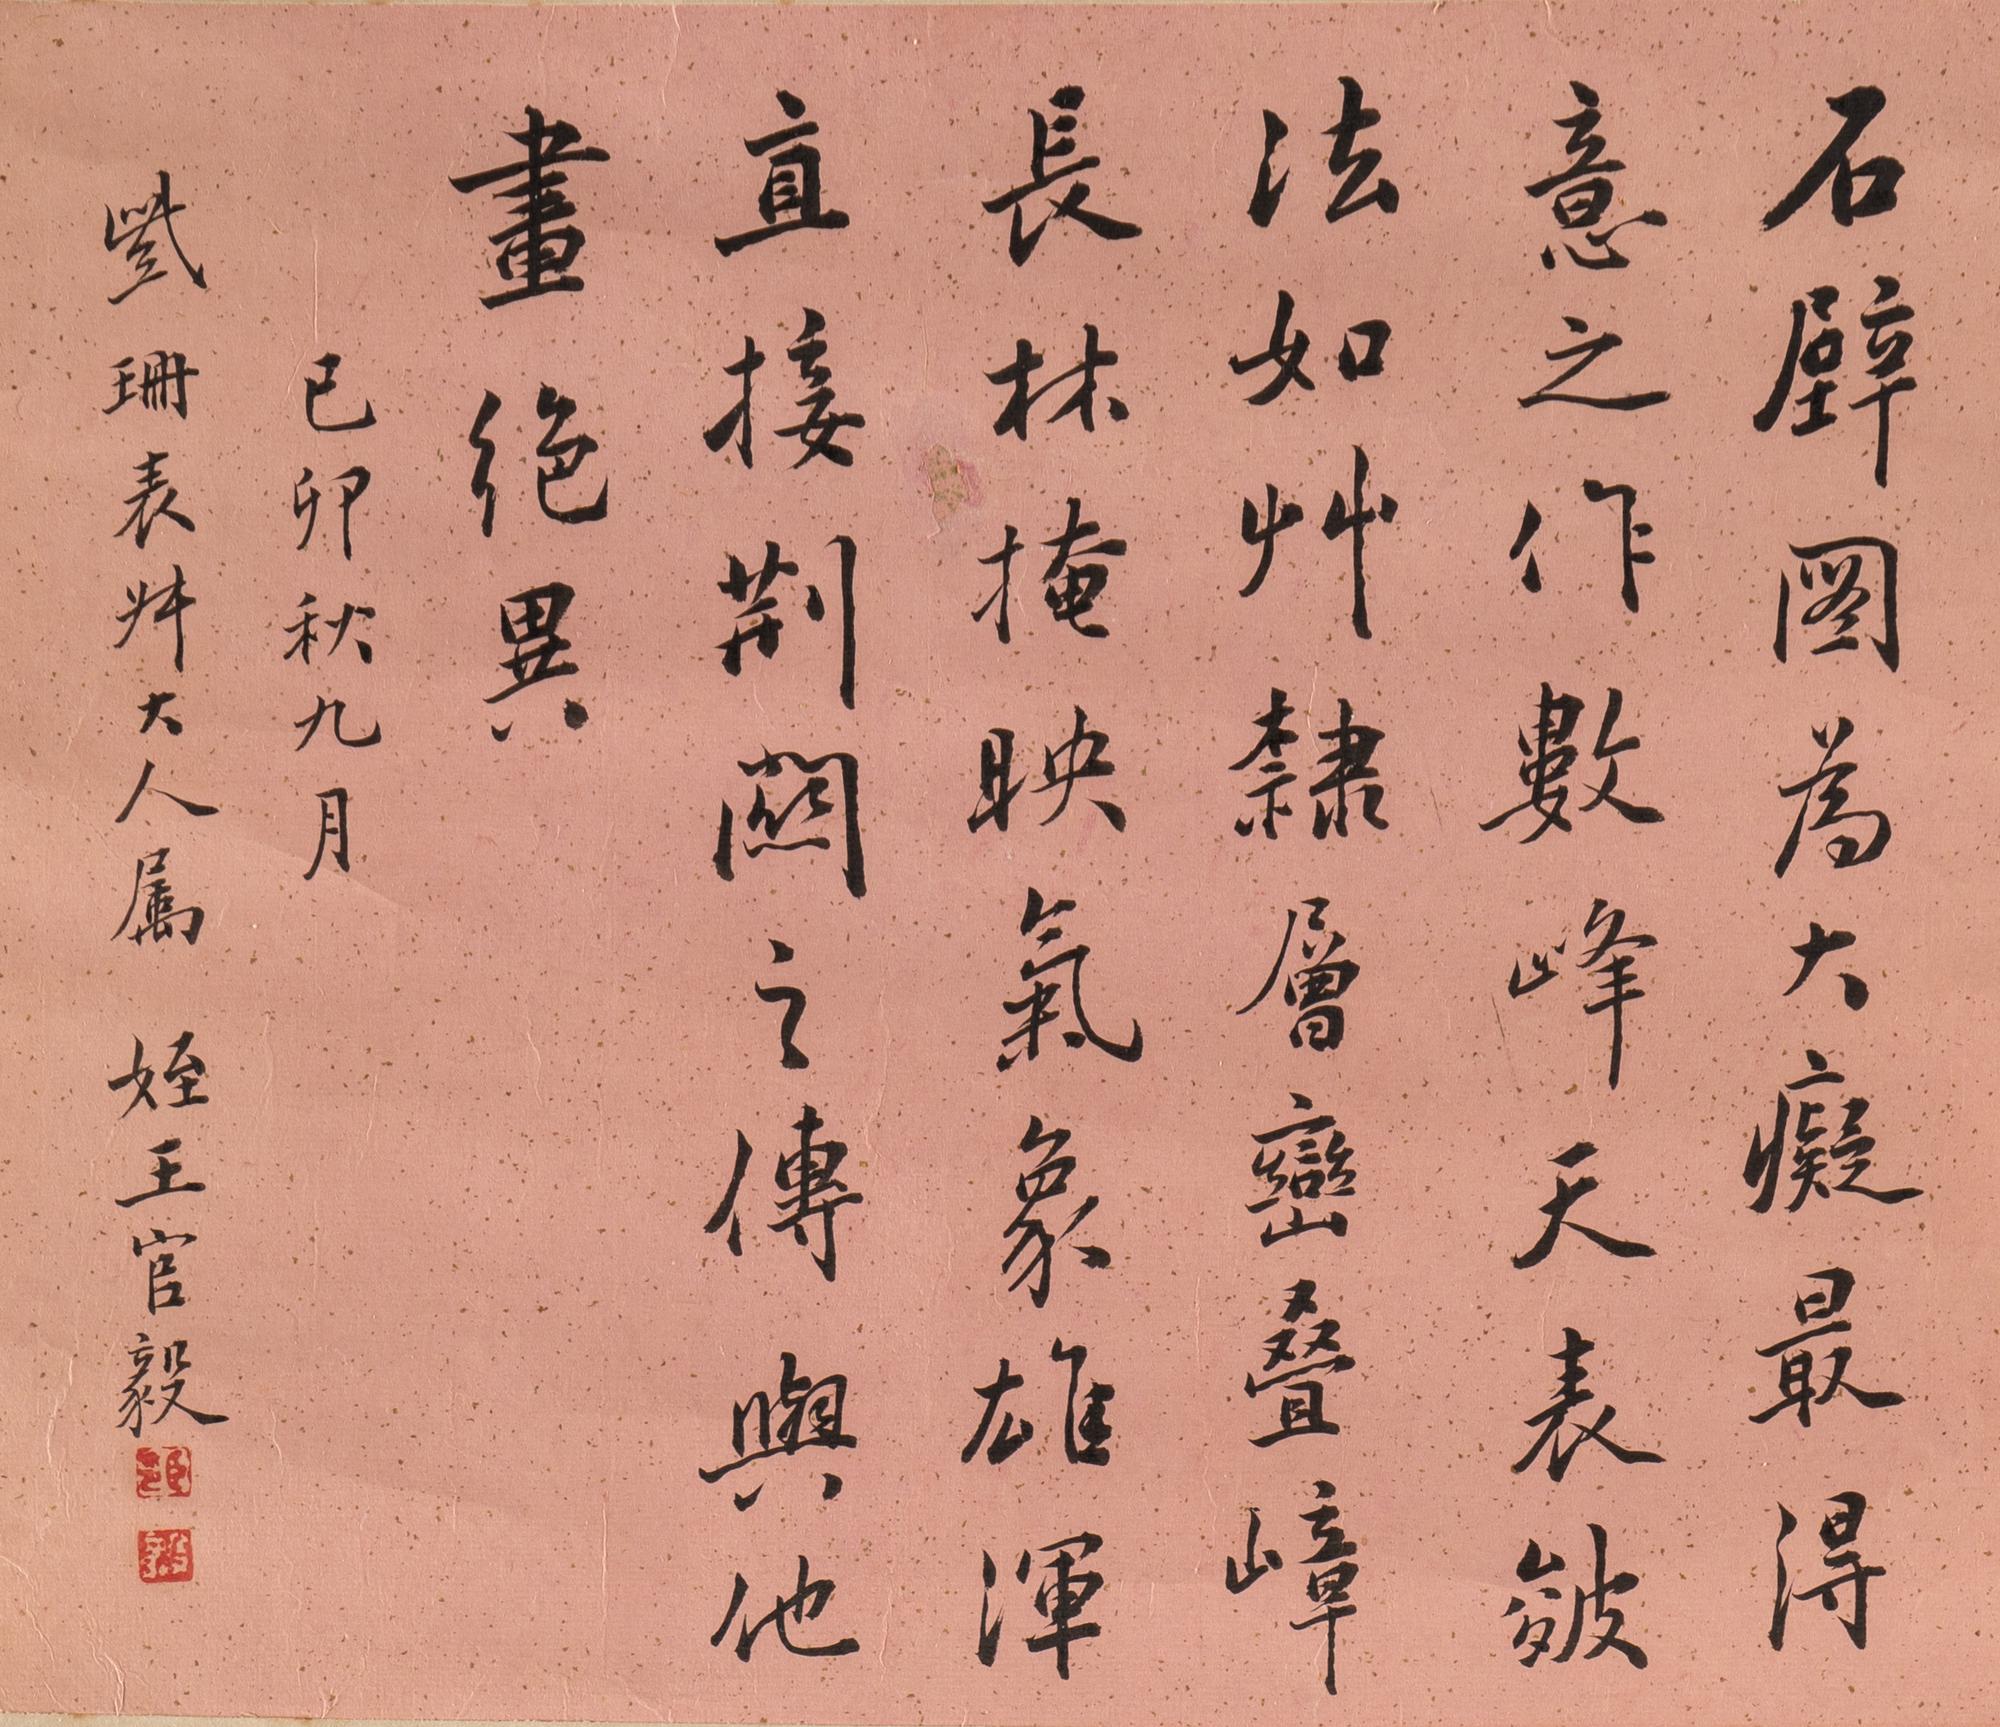 石壁圖為大癡最得
意之作數峰天表皴
法如艸隸層巒疊嶂
長林掩映氣象雄渾
直接荆關之傳與他
畫絕異
己卯秋九月
珊表叔大人屬 姪王官毅